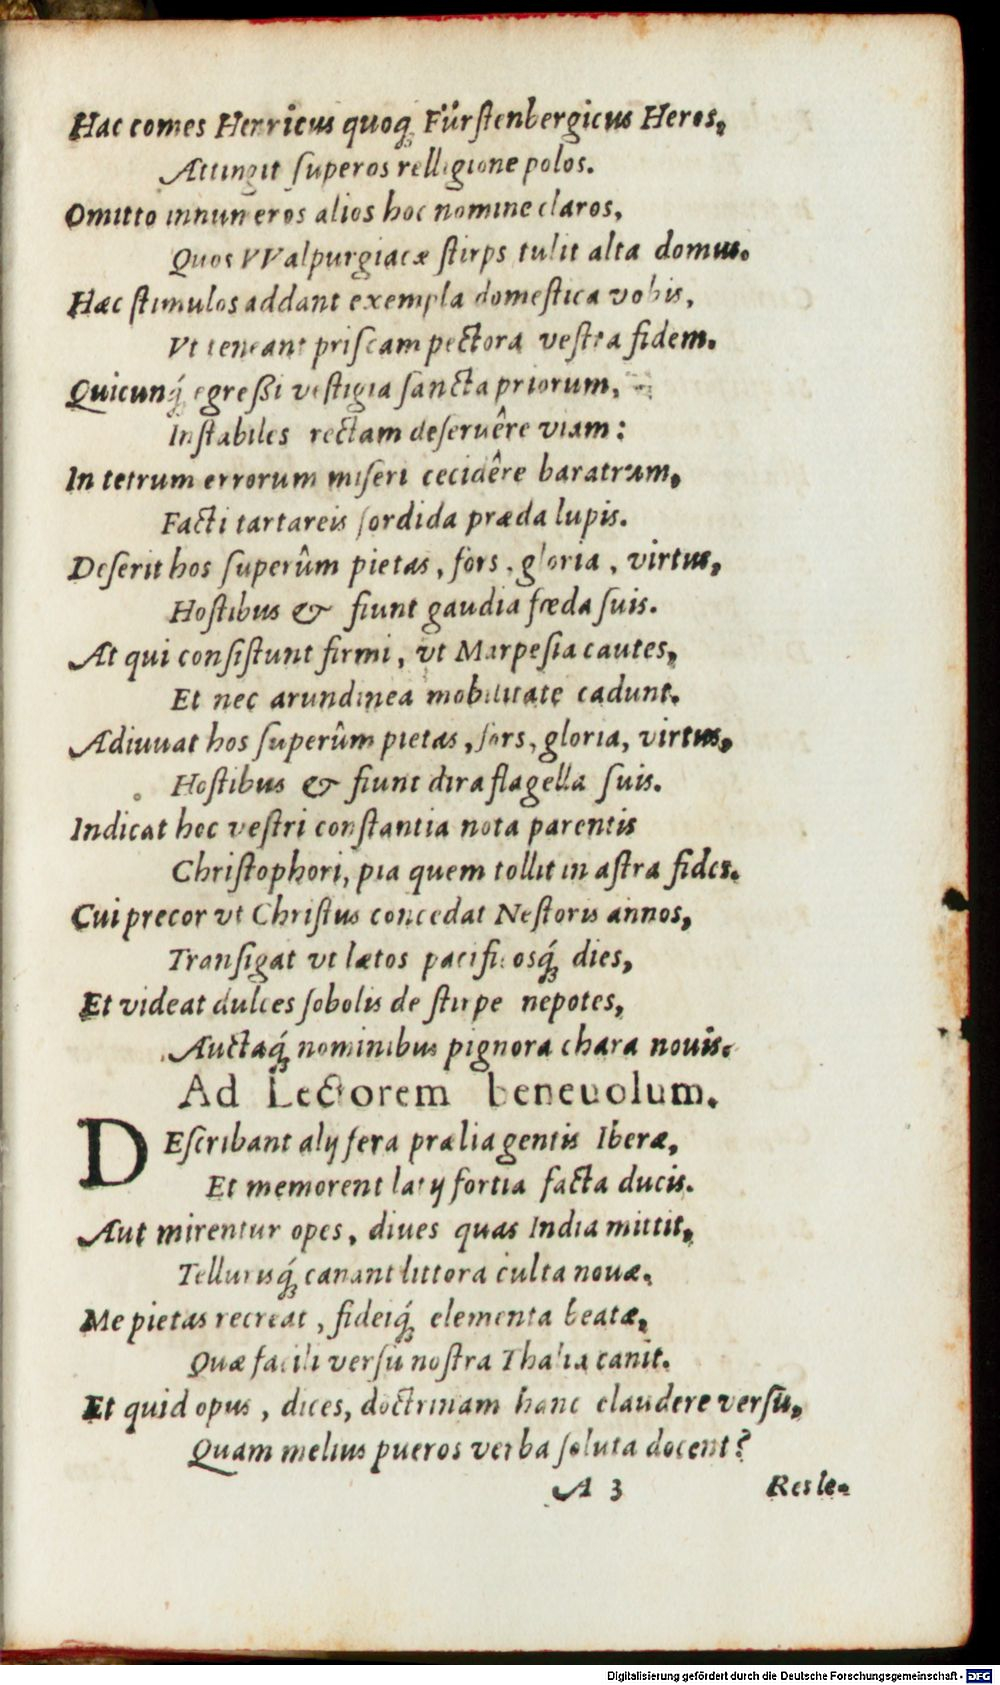 Hac comes Henricus quoq; Fürſtenbergicus Heros,
Attingit ſuperos relligione polos.
Omitto innumeros alios hoc nomine claros,
Quos VValpurgiacæ ſtirps tulit alta domus.
Hæc ſtimulos addant exempla domeſtica vobis,
Vt teneant priſcam pectora veſtra fidem.
Quicunq́; egreßi veſtigia ſancta priorum,
Inſtabiles rectam deſeruêre viam:
In tetrum errorum miſeri cecidêre baratrum,
Facti tartareis ſordida præda lupis.
Deſerit hos ſuperûm pietas, fors, gloria, virtus,
Hoſtibus & fiunt gaudia fœda ſuis.
At qui conſiſtunt firmi, vt Marpeſia cautes,
Et nec arundinea mobilitate cadunt.
Adiuuat hos ſuperûm pietas, fors, gloria, virtus,
Hoſtibus & fiunt dira flagella ſuis.
Indicat hoc veſtri conſtantia nota parentis
Chriſtophori, pia quem tollit in aſtra fides.
Cui precor vt Chriſtus concedat Neſtoris annos,
Tranſigat vt lætos pacificosq́; dies,
Et videat dulces ſobolis de ſtirpe nepotes,
Auctaq́; nominibus pignora chara nouis.
Ad Lectorem beneuolum.
DEſcribant alij fera prælia gentis Iberæ,
Et memorent latij fortia facta ducis.
Aut mirentur opes, diues quas India mittit,
Tellurisq́; canant littora culta nouæ.
Me pietas recreat, fideiq́; elementa beatæ,
Quæ facili verſu noſtra Thalia canit.
Et quid opus, dices, doctrinam hanc claudere verſu,
Quam melius pueros verba ſoluta docent?
A 3 Res le-
Digitalisierung gefördert durch die Deutsche Forschungsgemeinschaft - DFG